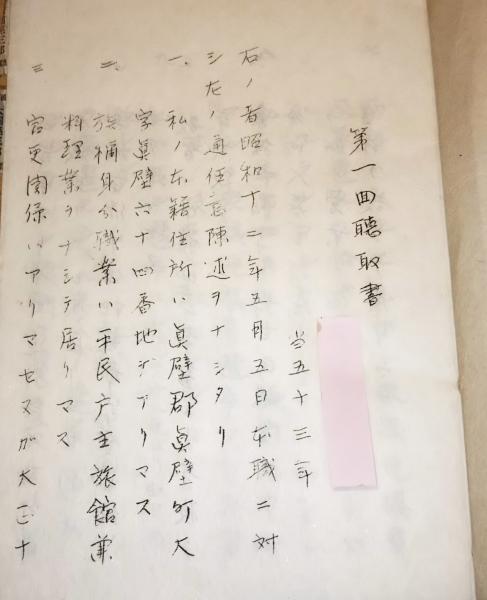 第一回聽取書
当五十三年
右ノ者昭和十二年五月五日本職ニ対
シ左ノ通任意陳述ヲナシタリ
一、私ノ本籍住所ハ眞壁郡眞壁町大
字眞壁六十四番地デアリマス
二、族稱身分職業ハ平民戸主旅館兼
料理業ヲナシテ居リマス
三 官吏関係ハアリマセヌガ大正十